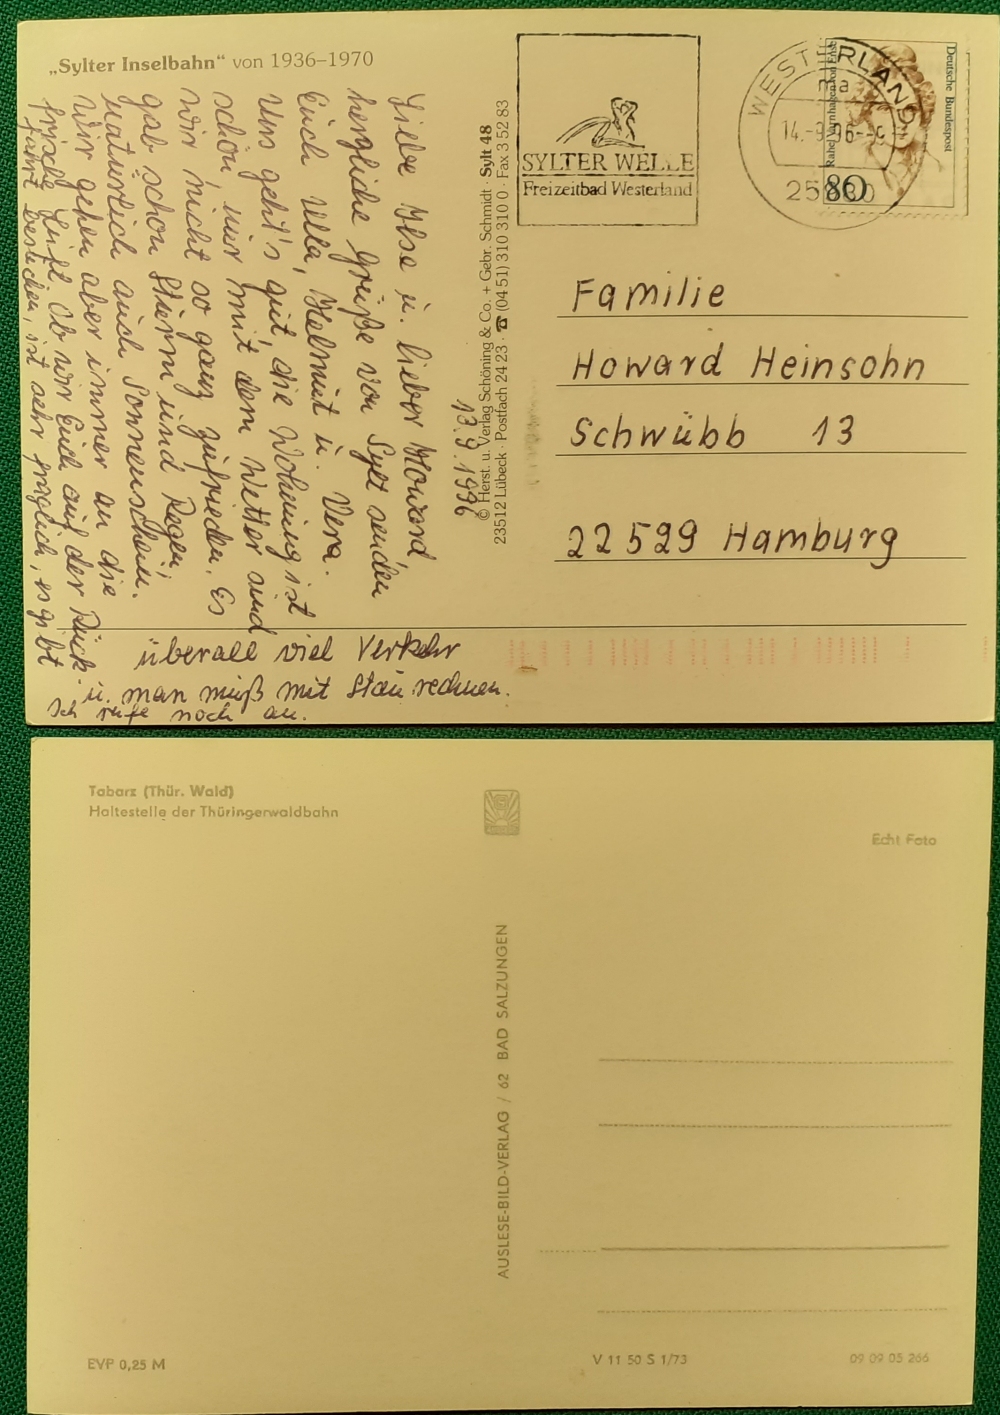 „Sylter Inselbahn“ von 1936–1970
13.9.1996
Liebe Ilse u. lieber Howard,
herzliche Grüße von Sylt senden
Euch Ulla, Helmut u. Vera.
Uns geht's gut, die Wohnung ist
schön nur mit dem Wetter sind
wir nicht so ganz zufrieden. Es
gab schon Sturm und Regen,
natürlich auch Sonnenschein.
Wir gehen aber immer an die
frische Luft. Ob wir Euch auf der Rück-
fahrt besuchen, ist sehr fraglich, es gibt
überall viel Verkehr
u. man muß mit Stau rechnen.
Ich rufe noch an.
© Herst. u. Verlag Schöning & Co. + Gebr. Schmidt · Sylt 48
23512 Lübeck · Postfach 24 23 · ☎ (04 51) 310 310 0 · Fax 3 52 83
SYLTER WELLE
Freizeitbad Westerland
WESTERLAND
ma
14.-9.96--9
25980
Deutsche Bundespost
80
Familie
Howard Heinsohn
Schwübb 13
22529 Hamburg
Tabarz (Thür. Wald)
Haltestelle der Thüringerwaldbahn
Echt Foto
AUSLESE-BILD-VERLAG / 62 BAD SALZUNGEN
EVP 0,25 M
V 11 50 S 1/73
09 09 05 266